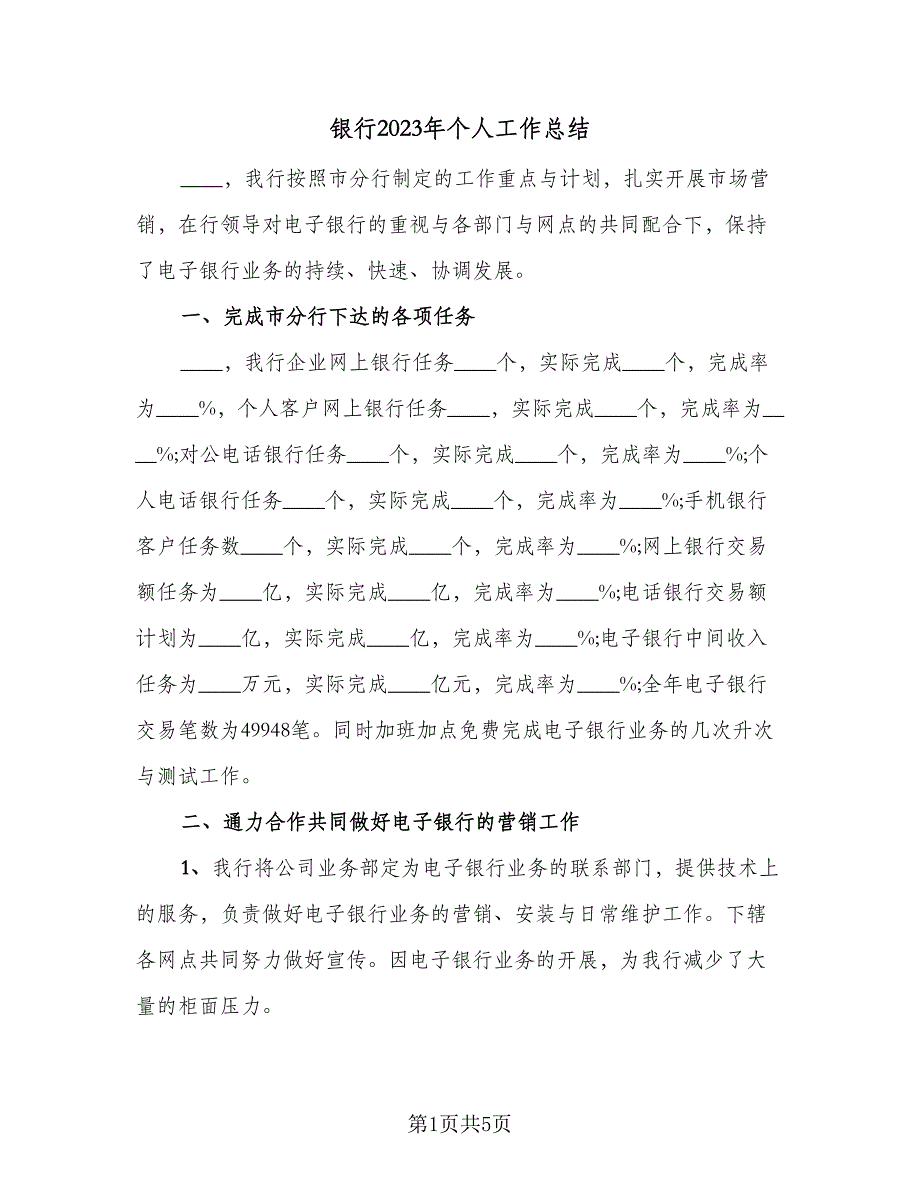 银行2023年个人工作总结
____，我行按照市分行制定的工作重点与计划，扎实开展市场营
销，在行领导对电子银行的重视与各部门与网点的共同配合下，保持
了电子银行业务的持续、快速、协调发展。
一、完成市分行下达的各项任务
____，我行企业网上银行任务____个，实际完成____个，完成率
为____%，个人客户网上银行任务____，实际完成____个，完成率为__
__%;对公电话银行任务____个，实际完成____个，完成率为____%;个
人电话银行任务____个，实际完成____个，完成率为____%;手机银行
客户任务数____个，实际完成____个，完成率为____%;网上银行交易
额任务为____亿，实际完成____亿，完成率为____%;电话银行交易额
计划为____亿，实际完成____亿，完成率为____%;电子银行中间收入
任务为____万元，实际完成____亿元，完成率为____%;全年电子银行
交易笔数为49948笔。同时加班加点免费完成电子银行业务的几次升次
与测试工作。
二、通力合作共同做好电子银行的营销工作
1、我行将公司业务部定为电子银行业务的联系部门，提供技术上
的服务，负责做好电子银行业务的营销、安装与日常维护工作。下辖
各网点共同努力做好宣传。因电子银行业务的开展，为我行减少了大
量的柜面压力。
第1页共5页